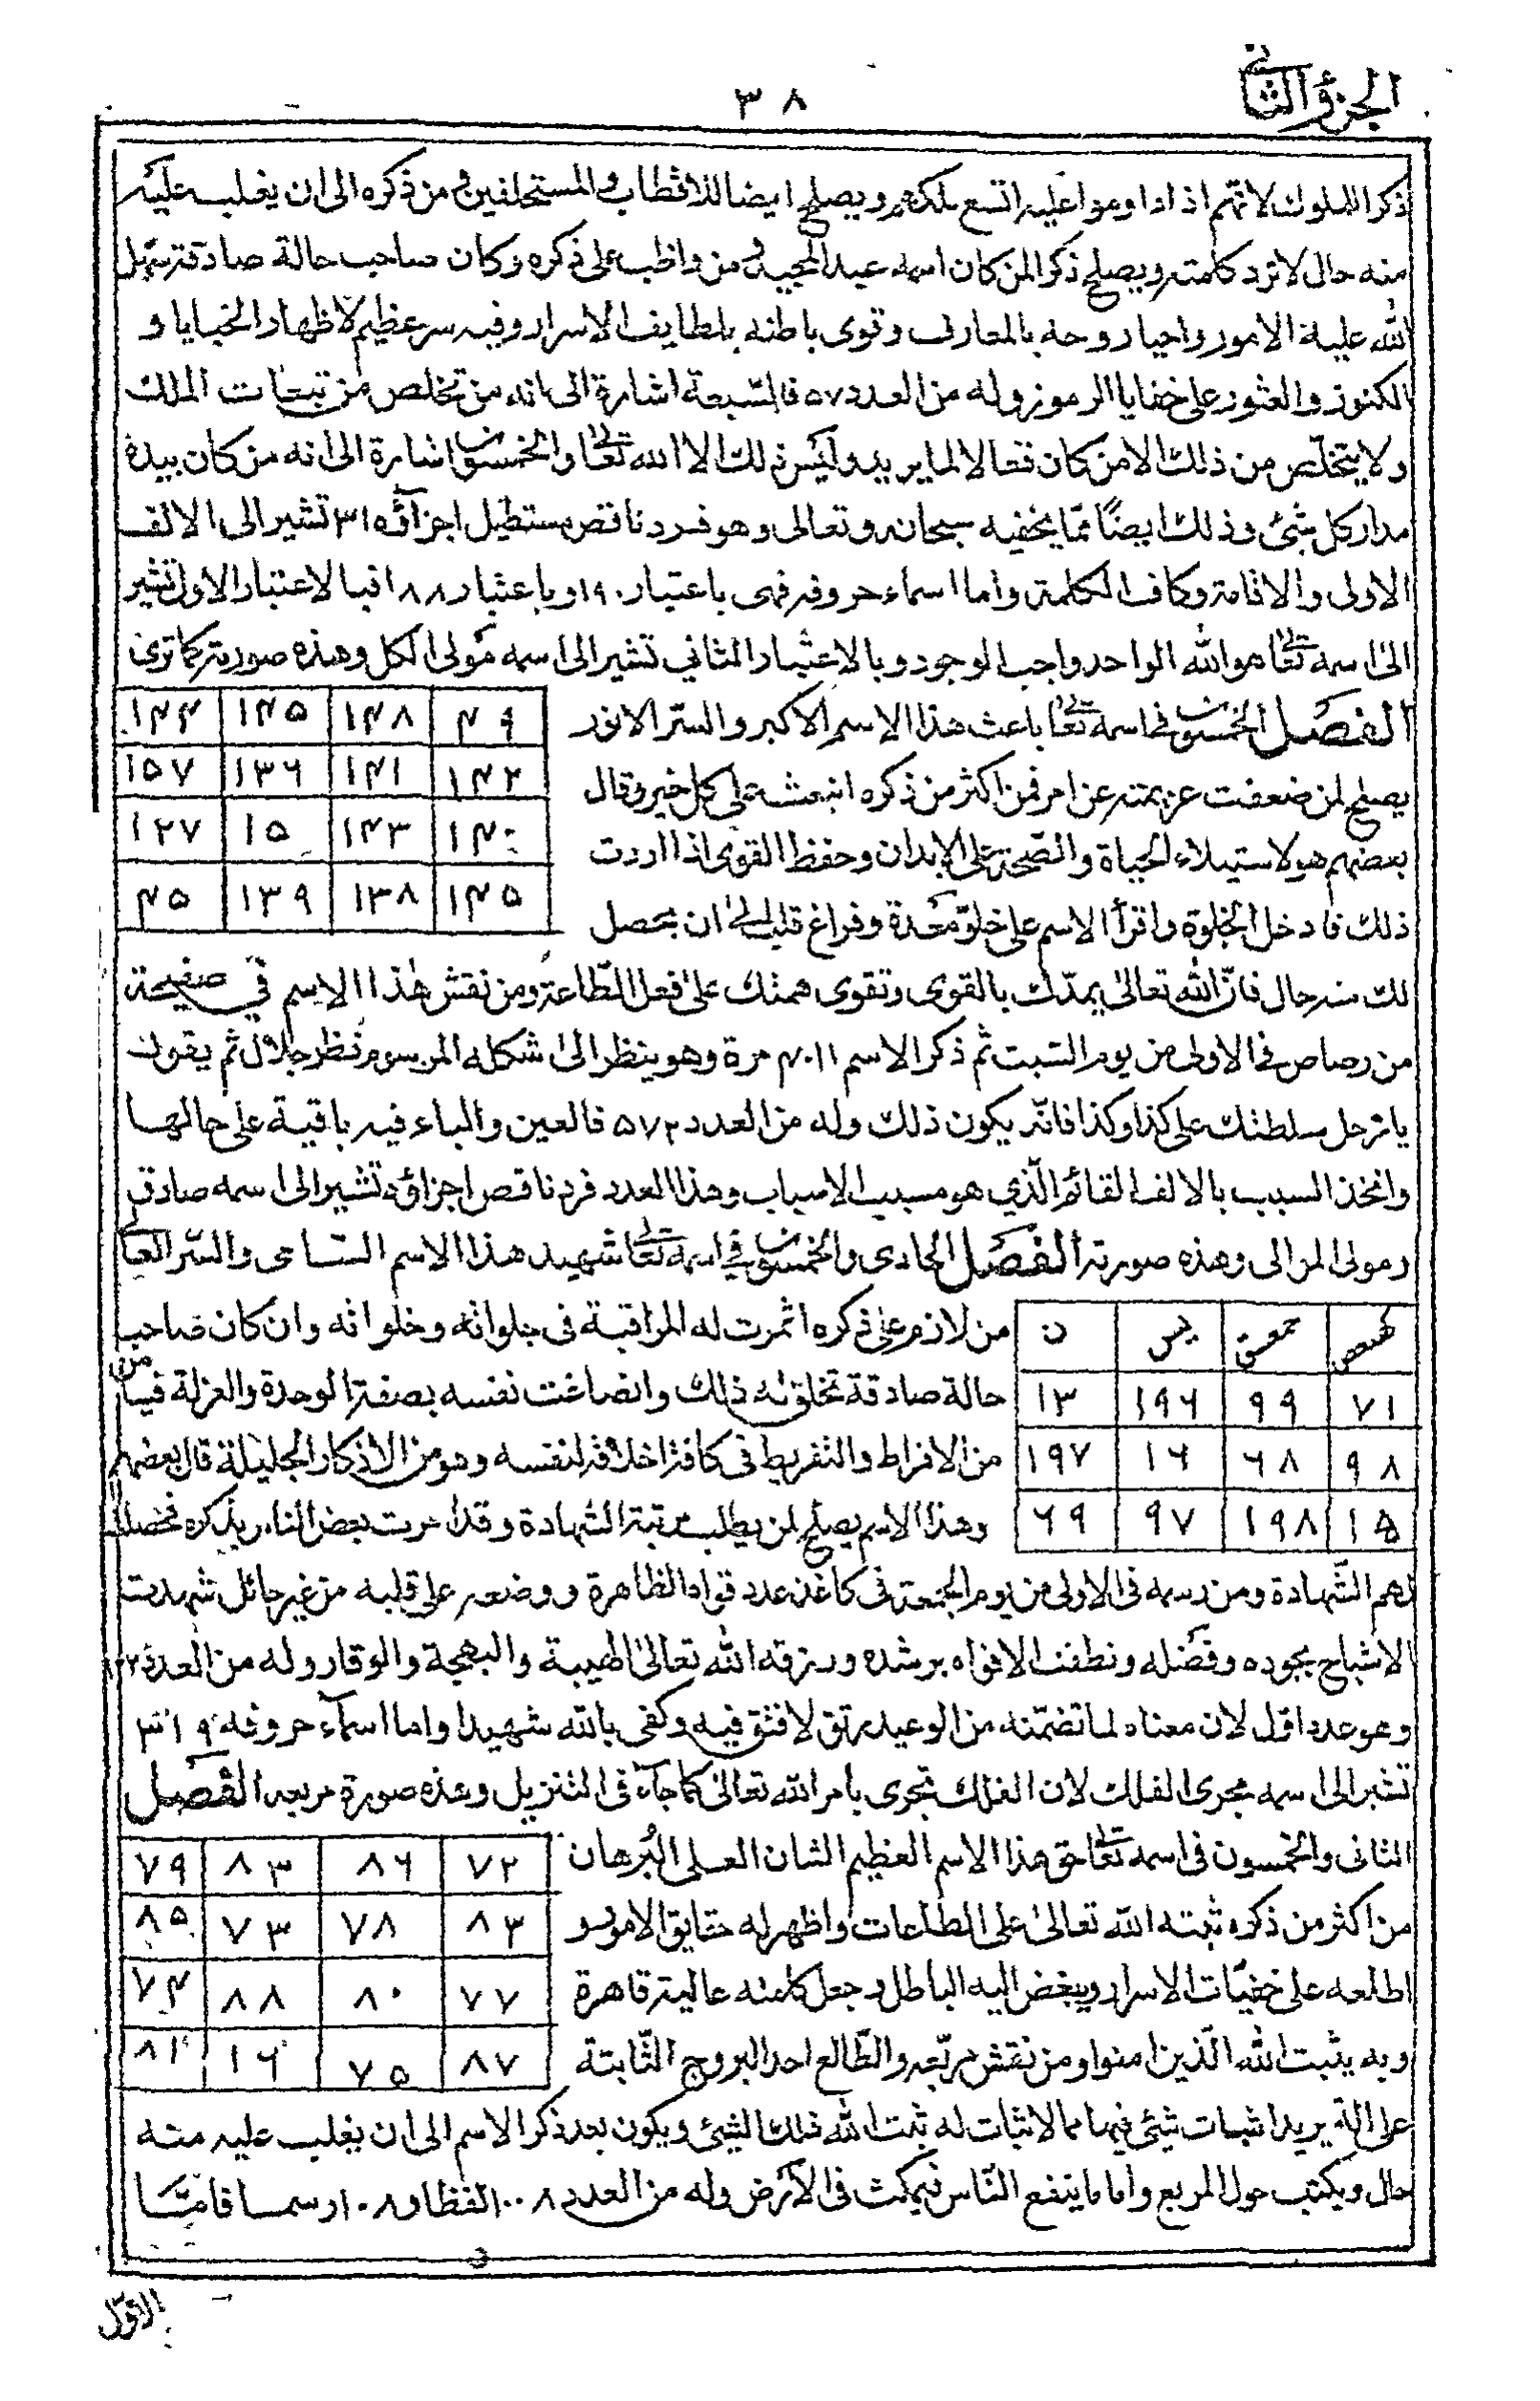 الجزؤ الثانى
٣٨
ذكرا للملوك لانهم اذا داوموا عليه اتسع ملكهم ويصلح ايضا للاقطاب والمستخلفين ومن ذكره الى ان يغلب عليه
منه حال لا ترد كلمته ويصلح ذكرا لمن كان اسمه عبد المجيد ومن واظب على ذكره وكان صاحب حالة صادقة سهل
الله عليه الامور واحيا روحه بالمعارف وقوى باطنه بلطايف الاسرار وفيه سر عظيم لاظهار الخبايا و
الكنوز والعثور على خفايا الرموز وله من العدد ٥٧ فالسبعة اشارة الى انه من تخلص من تبعات الملك
ولا يتخلص من ذلك الا من كان فعالا لما يريد وليس ذلك الا الله تعالى والخمسون اشارة الى انه من كان بيده
مدار كل شئ وذلك ايضا مما يخفيه سبحانه وتعالى وهو فرد ناقص مستطيل اجزاؤه ٣١٥ تشير الى الالف
الاولى والاقامة وكاف الكلمة واما اسماء حروفه فهى باعتبار ١٩٠ وباعتبار ١٨٨ فبالاعتبار الاول تشير
الى اسمه تعالى هو الله الواحد واجب الوجود وبالاعتبار الثانى تشير الى اسمه مولى الكل وهذه صورته كما ترى
الفصل الخمسون فى اسمه تعالى باعث هذا الاسم الاكبر والسر الانور
١٤٤ ١٤٥ ١٤٨ ٤٩
يصلح لمن ضعفت عزيمته عن امر فمن اكثر من ذكره انبعث الى كل خير وقال
١٥٧ ١٣٦ ١٤١ ١٤٢
بعضهم هو لاستيلاء الحياة والصحة على الابدان وحفظ القوى اذا اردت
١٢٧ ١٥ ١٤٣ ١٤٠
ذلك فادخل الخلوة واقرأ الاسم على خلو معدة وفراغ قلب الى ان يحصل
٤٥ ١٣٩ ١٣٨ ١٤٥
لك منه حال فان الله تعالى يمدك بالقوى وتقوى همتك على فعل الطاعة ومن نقش هذا الاسم فى صفيحة
من رصاص فى الاولى من يوم السبت ثم ذكر الاسم ٤٠١١ مرة وهو ينظر الى شكله المرسوم نظر جلال ثم يقول
يا زحل سلطنك على كذا وكذا فانه يكون ذلك وله من العدد ٥٧٢ فالعين والباء فيه باقية على حالها
واتخذ السبب بالالف القائم الذي هو مسبب الاسباب وهذا العدد فرد ناقص اجزاؤه تشير الى اسمه صادق
ومولى الموالى وهذه صورته الفصل الحادى والخمسون فى اسمه تعالى شهيد هذا الاسم السامى والسر العالى
كهيعص حمعسق يس ن
من لازم على ذكره اثمرت له المراقبة فى جلواته وخلواته وان كان صاحب
٧١ ٩٩ ١٩٦ ١٣
حالة صادقة تخلق له ذلك وانصاغت نفسه بصفة الوحدة والعزلة فيامن
٩٨ ٦٨ ١٦ ١٩٧
من الافراط والتفريط فى كافة اخلاقه لنفسه وهو من الاذكار الجليلة قال بعضهم
١٥ ١٩٨ ٩٧ ٦٩
وهذا الاسم يصلح لمن يطلب مرتبة الشهادة وقد امرت بعض الناس بذكره فحصلت
لهم الشهادة ومن رسمه فى الاولى من يوم الجمعة فى كاغذ عدد قواه الظاهرة ووضعه على قلبه من غير حائل شهدت
الاشباح بجوده وفضله ونطقت الافواه برشده ورزقه الله تعالى الهيبة والبهجة والوقار وله من العدد
وهو عدد اول لان معناه لما تضمنه من الوعيد رتق لا فتق فيه وكفى بالله شهيدا واما اسماء حروفه ٣١٩
تشير الى اسمه مجرى الفلك لان الفلك تجرى بامر الله تعالى كما جاء فى التنزيل وهذه صورة مربعه الفصل
الثانى والخمسون فى اسمه تعالى حق هذا الاسم العظيم الشان العلى البرهان
٧٩ ٨٣ ٨٦ ٧٢
من اكثر من ذكره ثبته الله تعالى على الطاعات واظهر له حقايق الامور و
٨٥ ٧٣ ٧٨ ٨٣
اطلعه على خفيات الاسرار ويبغض اليه الباطل وجعل كلمته عالية قاهرة
٧٤ ٨٨ ٨٠ ٧٧
وبه يثبت الله الذين امنوا ومن نقش مربعه والطالع احد البروج الثابتة
٨١ ١٦ ٧٥ ٨٧
على الة يريد اثبات شئ فيها مما لا ثبات له ثبت الله ذلك الشئ ويكون بعد ذكر الاسم الى ان يغلب عليه منه
حال ويكتب حول المربع واما ما ينفع الناس فيمكث فى الارض وله من العدد ١٠٠٨ لفظا و١٠٨ رسما فاما
الاول